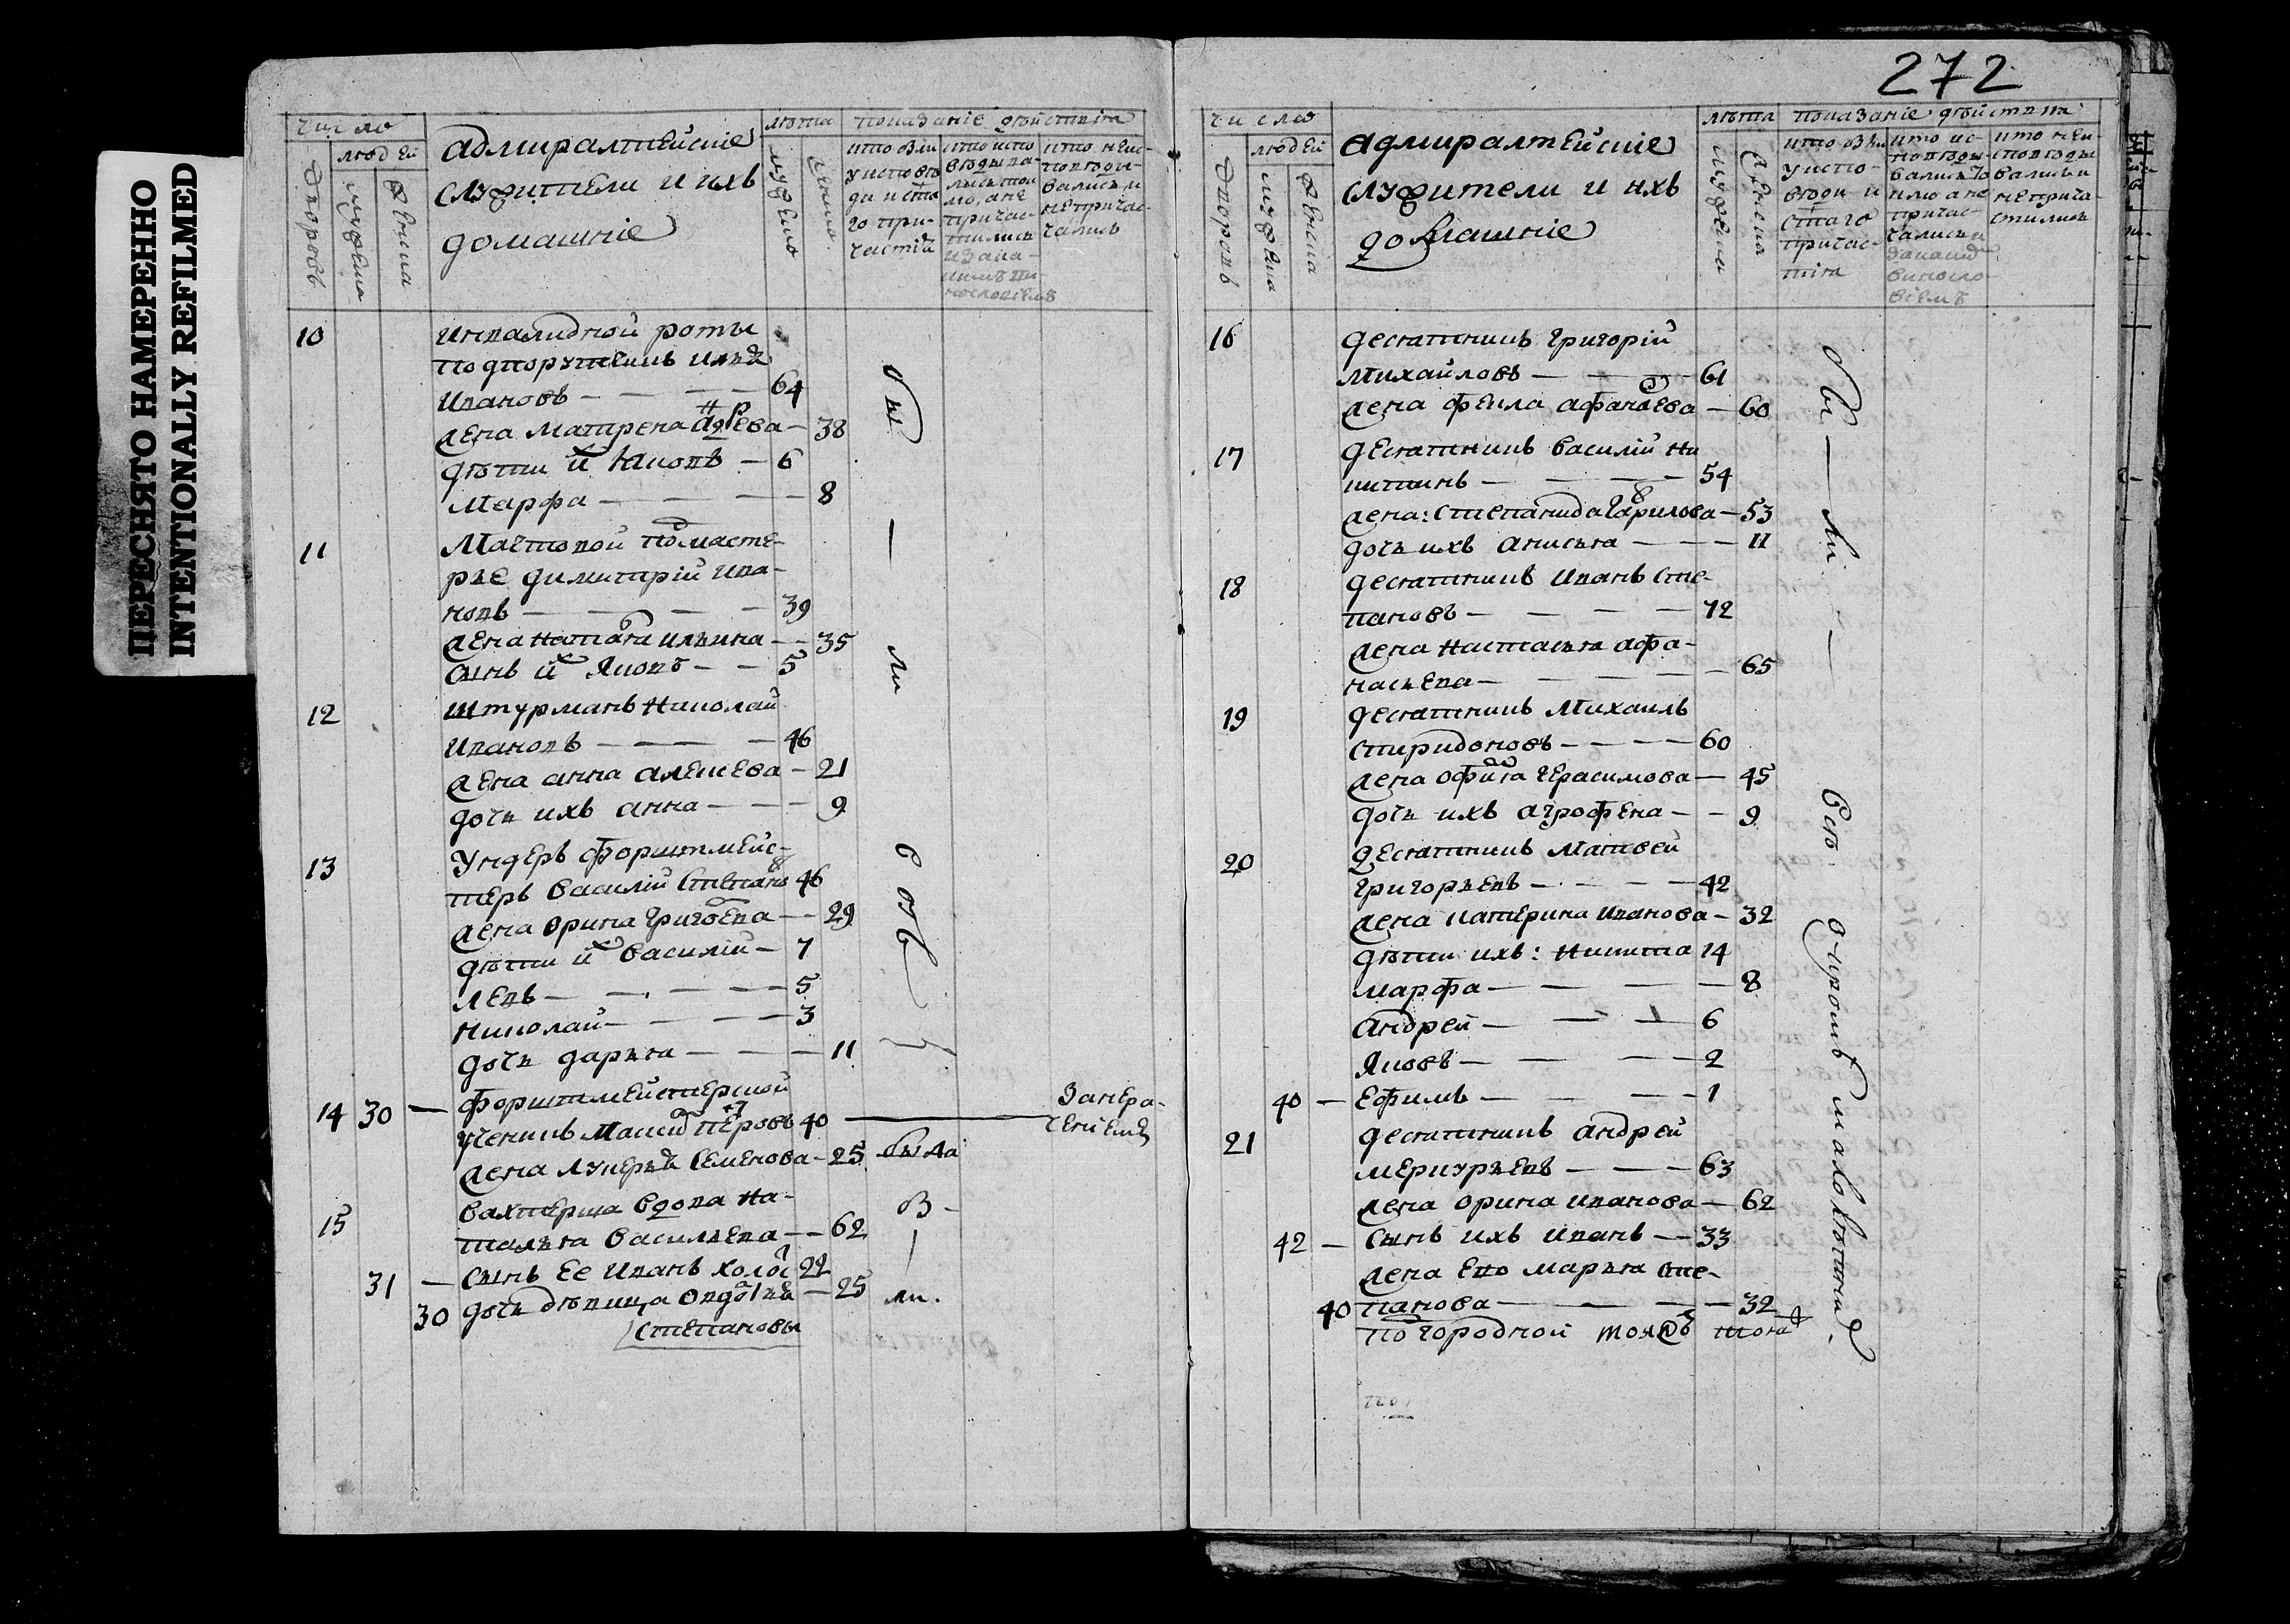 ПЕРЕСНЯТО НАМЕРЕННО
INTENTIONALLY REFILMED
число
людей
дворовъ
мужеска
женска
адмиралтейскіе
служители и ихъ
домашніе
лѣта
мужеска
женска
показаніе дѣйствія
кто были
у испове
ди и ста
го при-
частія
кто испо
ведыва-
лись токо
мо, а не
причас-
тились
кто неис-
поведы-
вались и
не причас-
тились
10
инвалидной роты
подпорутчикъ илья
ивановъ — — — 64
жена матрена андрева — 38
дѣти их яковъ — 6
марфа — — — — 8
11
мачтовой помасте-
рье димитрій ива-
новъ — — — — 39
жена наталя ильина — — 35
сынъ их яковъ — — 5
12
штурманъ николай
ивановъ — — — 46
жена анна алексева — 21
дочь ихъ анна — — — 9
13
ундеръ форштмейс-
теръ василій степано 46
жена орина григоева — — 29
дѣти их василій — 7
левъ — — — — 5
николай — — — — 3
дочь дарья — — — 11
бы — ли
14 30 — форштмейстерской
ученикъ петровъ 40
за нера-
ченіемъ
жена лукерья семенова — 25 была
15
вахтерша вдова на-
талья васильева — — 62
31 — сынъ ее иванъ холос 22
30 дочь дѣвица овдотья — 25
степановы
бы — ли.
272
число
людей
дворовъ
мужеска
женска
адмиралтейскіе
служители и ихъ
домашніе
лѣта
мужеска
женска
показаніе дѣйства
кто были
у испо-
веди и
стаго
причас-
тія
кто ис-
поведы-
вались то
кмо а не
причас-
тились
кто неи-
споведы
вались и
не прича-
стились
16
десятникъ григорій
михайловъ — — — 61
жена фекла афанаева — 60
17
десятникъ василій ни
китинъ — — — — 54
жена: степанида гаврилова — 53
дочь ихъ анисья — — — 11
18
десятникъ иванъ сте-
пановъ — — — — 72
жена настасья афа-
насьева — — — — 65
19
десятникъ михаилъ
спиридоновъ — — — — 60
жена офимя герасимова — 45
дочь ихъ агрофена — — 9
20
десятникъ матвей
григорьевъ — — — — 42
жена катерина иванова — 32
дѣти ихъ: никита 14
марфа — — — — 8
андрей — — — 6
яковъ — — — — 2
40 — ефимъ — — — — 1
21
десятникъ андрей
меркурьевъ — — — 63
жена орина иванова — 62
42 — сынъ ихъ иванъ — — 33
жена ево марья сте-
40 панова — — — — — 32
по городной
бы — ли —